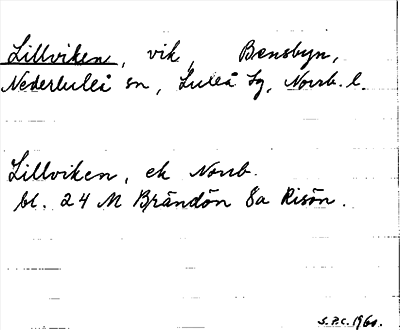 Lillviken, vik, Bensbyn,
Nederluleå sn, Luleå tg, Norrb. l.
Lillviken, ek Norrb.
bl. 24 M Brändön 8a Risön.
S.P.C. 1960.